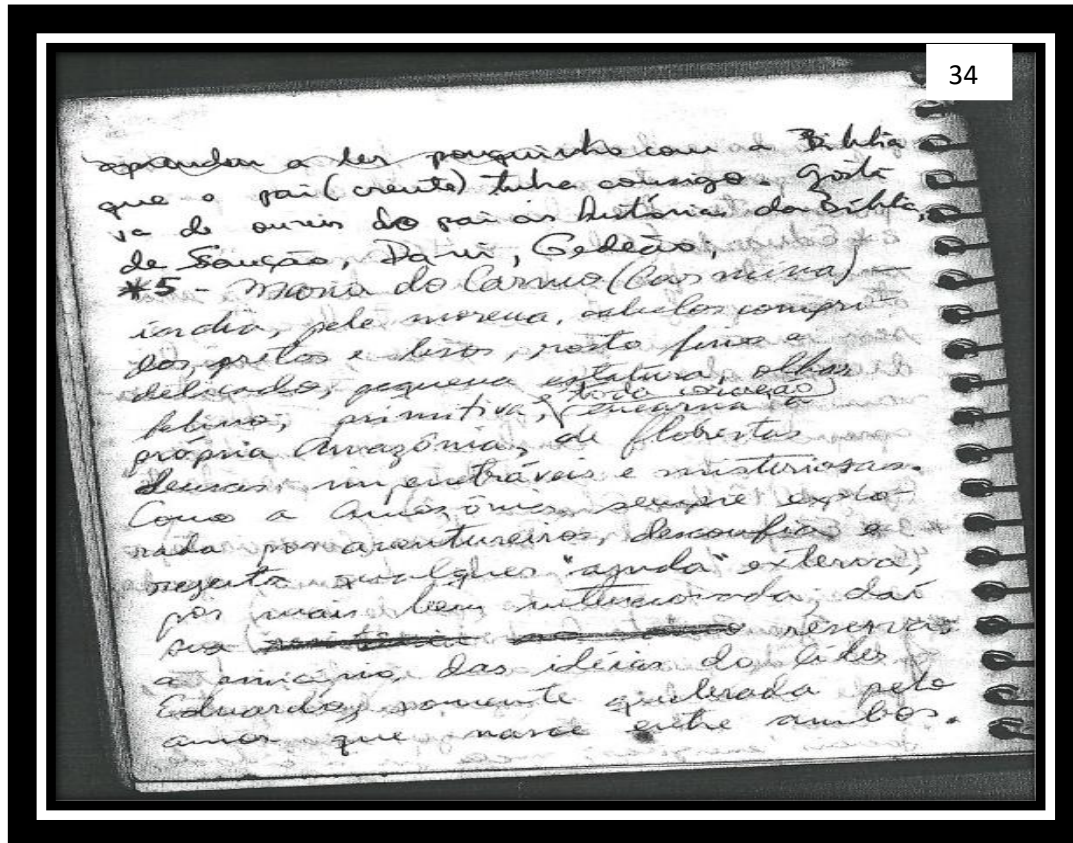 34
aprendeu a ler pouquinho com a Bíblia
que o pai (crente) tinha consigo. Gosta-
va de ouvir do pai as histórias da Bíblia,
de Sansão, Davi, Gedeão,
*5 - Maria do Carmo (Carmina) -
índia, pele morena, cabelos compri-
dos, pretos e lisos, rosto fino e
delicado, pequena estatura, olhar
primitiva, e toda coração encarna a
própria Amazônia, de florestas
densas, impenetráveis e misteriosas.
Como a Amazônia, sempre explo-
rada por aventureiros, desconfia e
rejeita qualquer "ajuda" externa,
por mais bem intencionada, daí
sua reservas
a princípio, das idéias do líder
Eduardo, somente quebrada pelo
amor que nasce entre ambos.